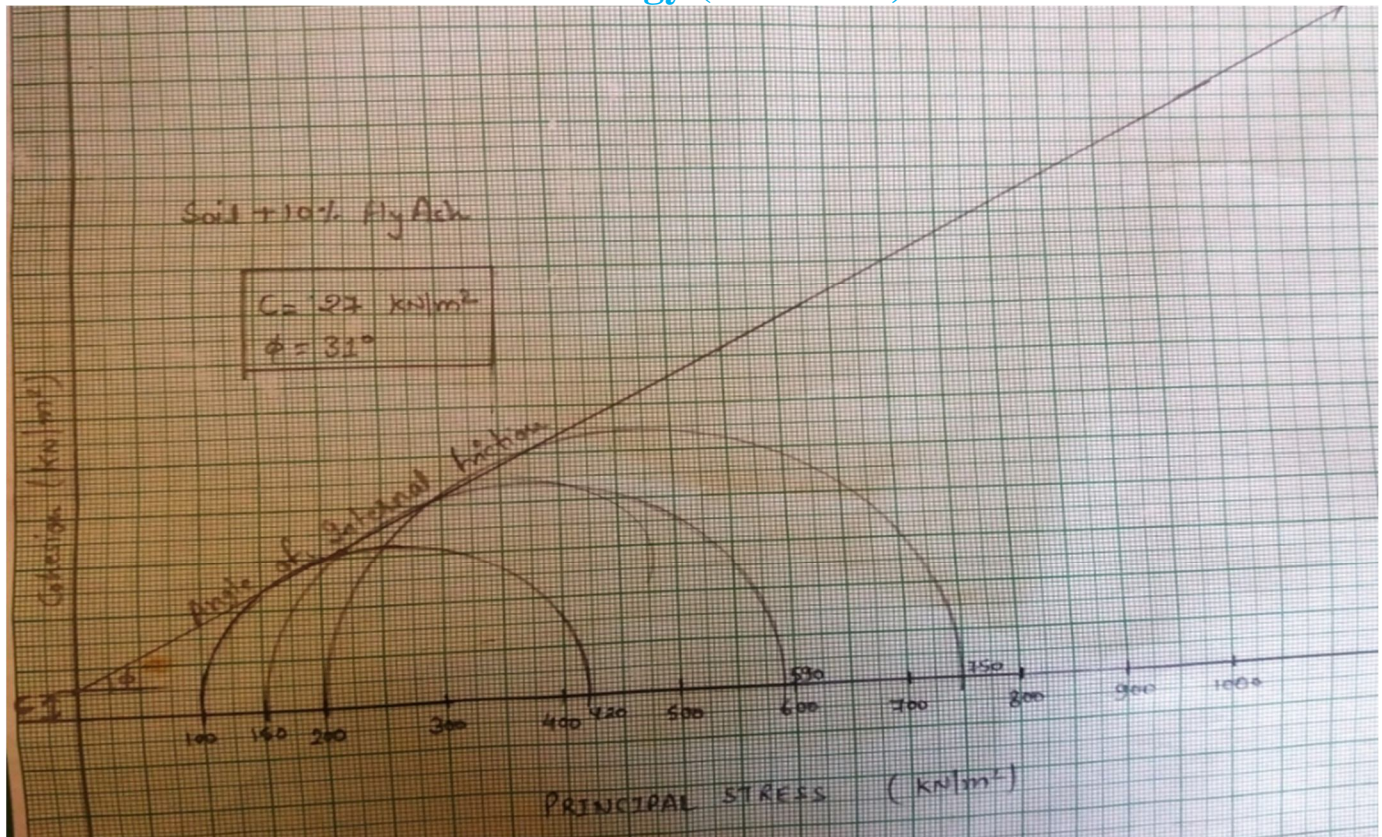 Soil + 10% FlyAch
C = 27 KN/m²
ϕ = 31°
Cohesion (KN/m²)
Angle of Internal friction
ϕ
590
750
100
150
200
300
400
420
500
600
700
800
900
1000
PRINCIPAL STRESS (KN/m²)